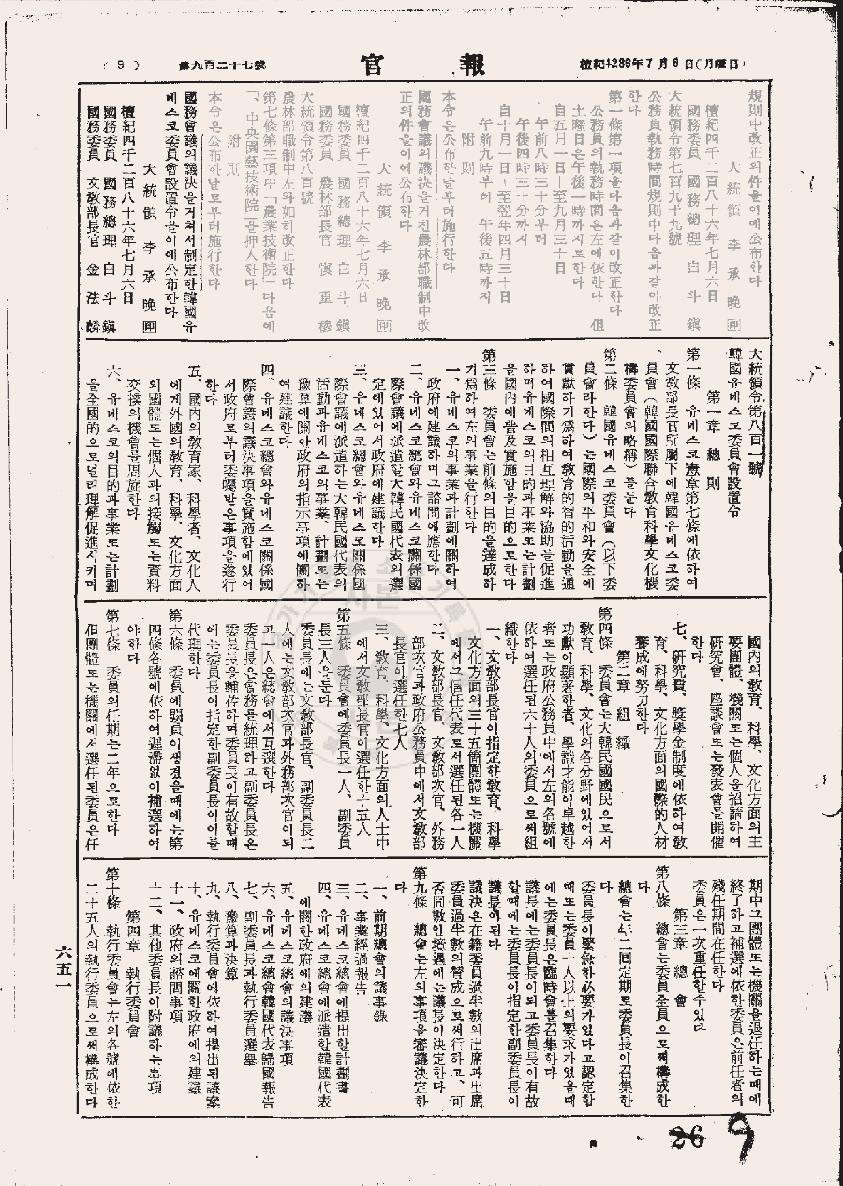 檀紀4286年7月6日(月曜日)
官報
第九百二十七號
(9)
規則中改正의件을이에公布한다
大統領 李承晩 印
檀紀四千二百八十六年七月六日
國務委員 國務總理 白斗鎭
大統領令第七百九十九號
公務員執務時間規則中다음과같이改正
한다
第一條第一項을다음과같이改正한다
公務員의執務時間은左에依한다 但
土曜日은午後一時까지로한다
自五月一日—至九月三十日
午前八時三十分부터
午後四時三十分까지
自十月一日—至翌年四月三十日
午前九時부터 午後五時까지
附則
本令은公布한날부터施行한다
國務會議의議決을거친農林部職制中改
正의件을이에公布한다
大統領 李承晩 印
檀紀四千二百八十六年七月六日
國務委員 國務總理 白斗鎭
國務委員 農林部長官
大統領令第八百號
農林部職制中左와如히改正한다
第七條第三項中「農業技術院」다음에
「、中央園藝技術院」을押入한다
附則
本令은公布한날로부터施行한다
國務會議의議決을거쳐서制定한韓國유
네스코委員會設置令을이에公布한다
大統領 李承晩 印
檀紀四千二百八十六年七月六日
國務委員 國務總理 白斗鎭
國務委員 文敎部長官 金法麟
大統領令第八百一號
韓國유네스코委員會設置令
第一章 總則
第一條 유네스코憲章第七條에依하여
文敎部長官所屬下에韓國유네스코委
員會(韓國國際聯合敎育科學文化機
構委員會의略稱)를둔다
第二條 韓國유네스코委員會(以下委
員會라한다)는國際의平和와安全에
貢獻하기爲하여敎育的智的活動을通
하여國際間의相互理解와協助를促進
하며유네스코의目的과事業또는計劃
을國內에普及實施함을目的으로한다
第三條 委員會는前條의目的을達成하
기爲하여左의事業을行한다
一、유네스코의事業과計劃에關하여
政府에建議하며그諮問에應한다
二、유네스코總會와유네스코關係國
際會議에派遣할大韓民國代表의選
定에있어서政府에建議한다
三、유네스코總會와유네스코關係國
際會議에派遣하는大韓民國代表의
活動과유네스코의事業、計劃또는
豫算에關한政府의指示事項에關하
여建議한다
四、유네스코總會와유네스코關係國
際會議의議決事項을實施함에있어
서政府로부터委囑받은事項을遂行
한다
五、國內의敎育家、科學者、文化人
에게外國의敎育、科學、文化方面
의團體또는個人과의接觸또는資料
交換의機會를周旋한다
六、유네스코의目的과事業또는計劃
을全國的으로널리理解促進시키며
國內의敎育、科學、文化方面의主
要團體、機關또는個人을招請하여
硏究會、座談會또는發表會를開催
한다
七、硏究費、奬學金制度에依하여敎
育、科學、文化方面의國際的人材
養成에努力한다
第二章 組織
第四條 委員會는大韓民國國民으로서
敎育、科學、文化의各分野에있어서
功獻이顯著한者、學識才能이卓越한
者또는政府公務員中에서左의各號에
依하여選任된六十人의委員으로써組
織한다
一、文敎部長官이指定한敎育、科學
文化方面의三十五個團體또는機關
에서그信任代表로서選任된各一人
二、文敎部長官、文敎部次官、外務
部次官과政府公務員中에서文敎部
長官이選任한七人
三、敎育、科學、文化方面의人士中
에서文敎部長官이選任한十五人
第五條 委員會에委員長一人、副委員
長三人을둔다
委員長에는文敎部長官、副委員長二
人에는文敎部次官과外務部次官이되
고一人은總會에서互選한다
委員長은會務를統理하고副委員長은
委員長을輔佐하며委員長이有故할때
에는委員長이指定한副委員長이이를
代理한다
第六條 委員에闕員이생겼을때에는第
四條各號에依하여遲滯없이補選하여
야한다
第七條 委員의任期는二年으로한다
但團體또는機關에서選任된委員은任
期中그團體또는機關을退任하는때에
終了하고補選에依한委員은前任者의
殘任期間在任한다
委員은一次重任할수있다
第三章 總會
第八條 總會는委員全員으로써構成한
다
總會는年二回定期로委員長이召集한
다
委員長이緊急한必要가있다고認定할
때또는委員十人以上의要求가있을때
에는委員長은臨時會를召集한다
議長에는委員長이되고委員長이有故
할때에는委員長이指定한副委員長이
議長이된다
議決은在籍委員過半數의出席과出席
委員過半數의贊成으로써行하고、可
否同數인境遇에는議長이決定한다
第九條 總會는左의事項을審議決定한
다
一、前期總會의議事錄
二、事業經過報告
三、유네스코總會에提出한計劃書
四、유네스코總會에派遣한韓國代表
에關한政府에의建議
五、유네스코總會의議決事項
六、유네스코總會韓國代表歸國報告
七、副委員長과執行委員選擧
八、豫算과決算
九、執行委員會에依하여提出된議案
十、유네스코에關한政府에의建議
十一、政府의諮問事項
十二、其他委員長이附議하는事項
第四章 執行委員會
第十條 執行委員會는左의各號에依한
二十五人의執行委員으로써構成한다
六五一
26
9